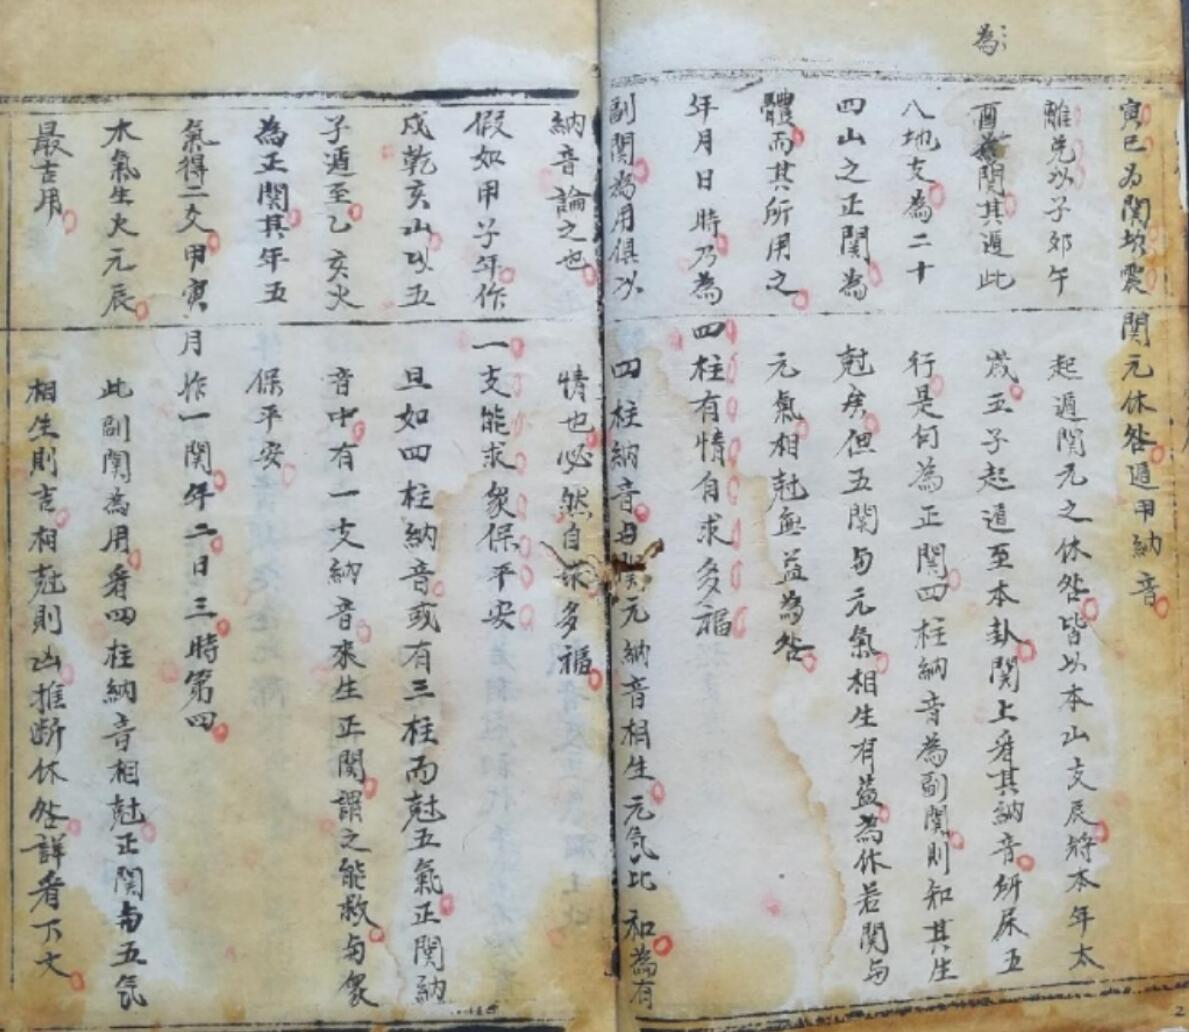 為
寅巳为関坎震
離兌以子卯午
酉為関其遁此
八地支為二十
四山之正関為
體而其所用之
年月日時乃為
副関為用俱以
関元休咎遁甲納音
起遁関元之休咎皆以本山支辰将本年太
歲五子起遁至本卦関上看其納音所屎五
行是何為正関四柱納音為副関則知其生
尅矣但五関与元氣相生有益為休若関与
元氣相尅無益為咎
四柱有情自求多福
四柱納音与関元納音相生元気比和為有
納音論之也
假如甲子年作
戌乾亥山以五
子遁至乙亥火
為正関其年五
氣得二爻甲寅
木氣生火元辰
最吉用
情也必然自求多福
一支能求衆保平安
且如四柱納音或有三柱而尅五氣正関納
音中有一支納音來生正関謂之能救与衆
保平安
月作一関年二日三時第四
此副関為用看四柱納音相尅正関与五気
相生則吉相尅則凶推断休咎詳看下文
2